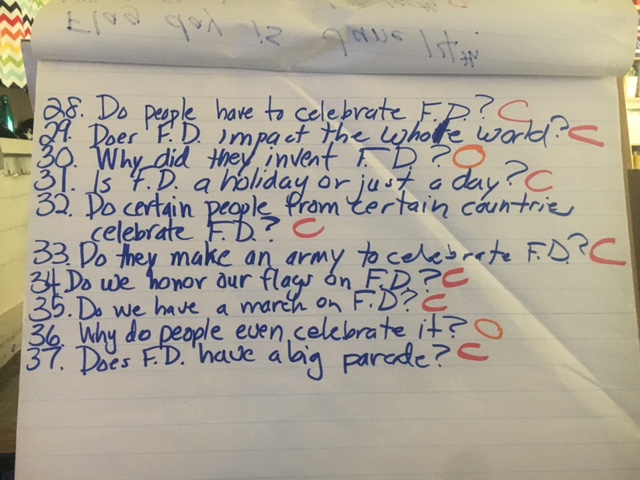 Flag day is June 14th
28. Do people have to celebrate F.D.? C
29. Does F.D. impact the whole world? C
30. Why did they invent F.D.? O
31. Is F.D. a holiday or just a day? C
32. Do certain people from certain countries
celebrate F.D.? C
33. Do they make an army to celebrate F.D.? C
34 Do we honor our flags on F.D.? C
35. Do we have a march on F.D? C
36. Why do people even celebrate it? O
37. Does F.D. have a big parade? C